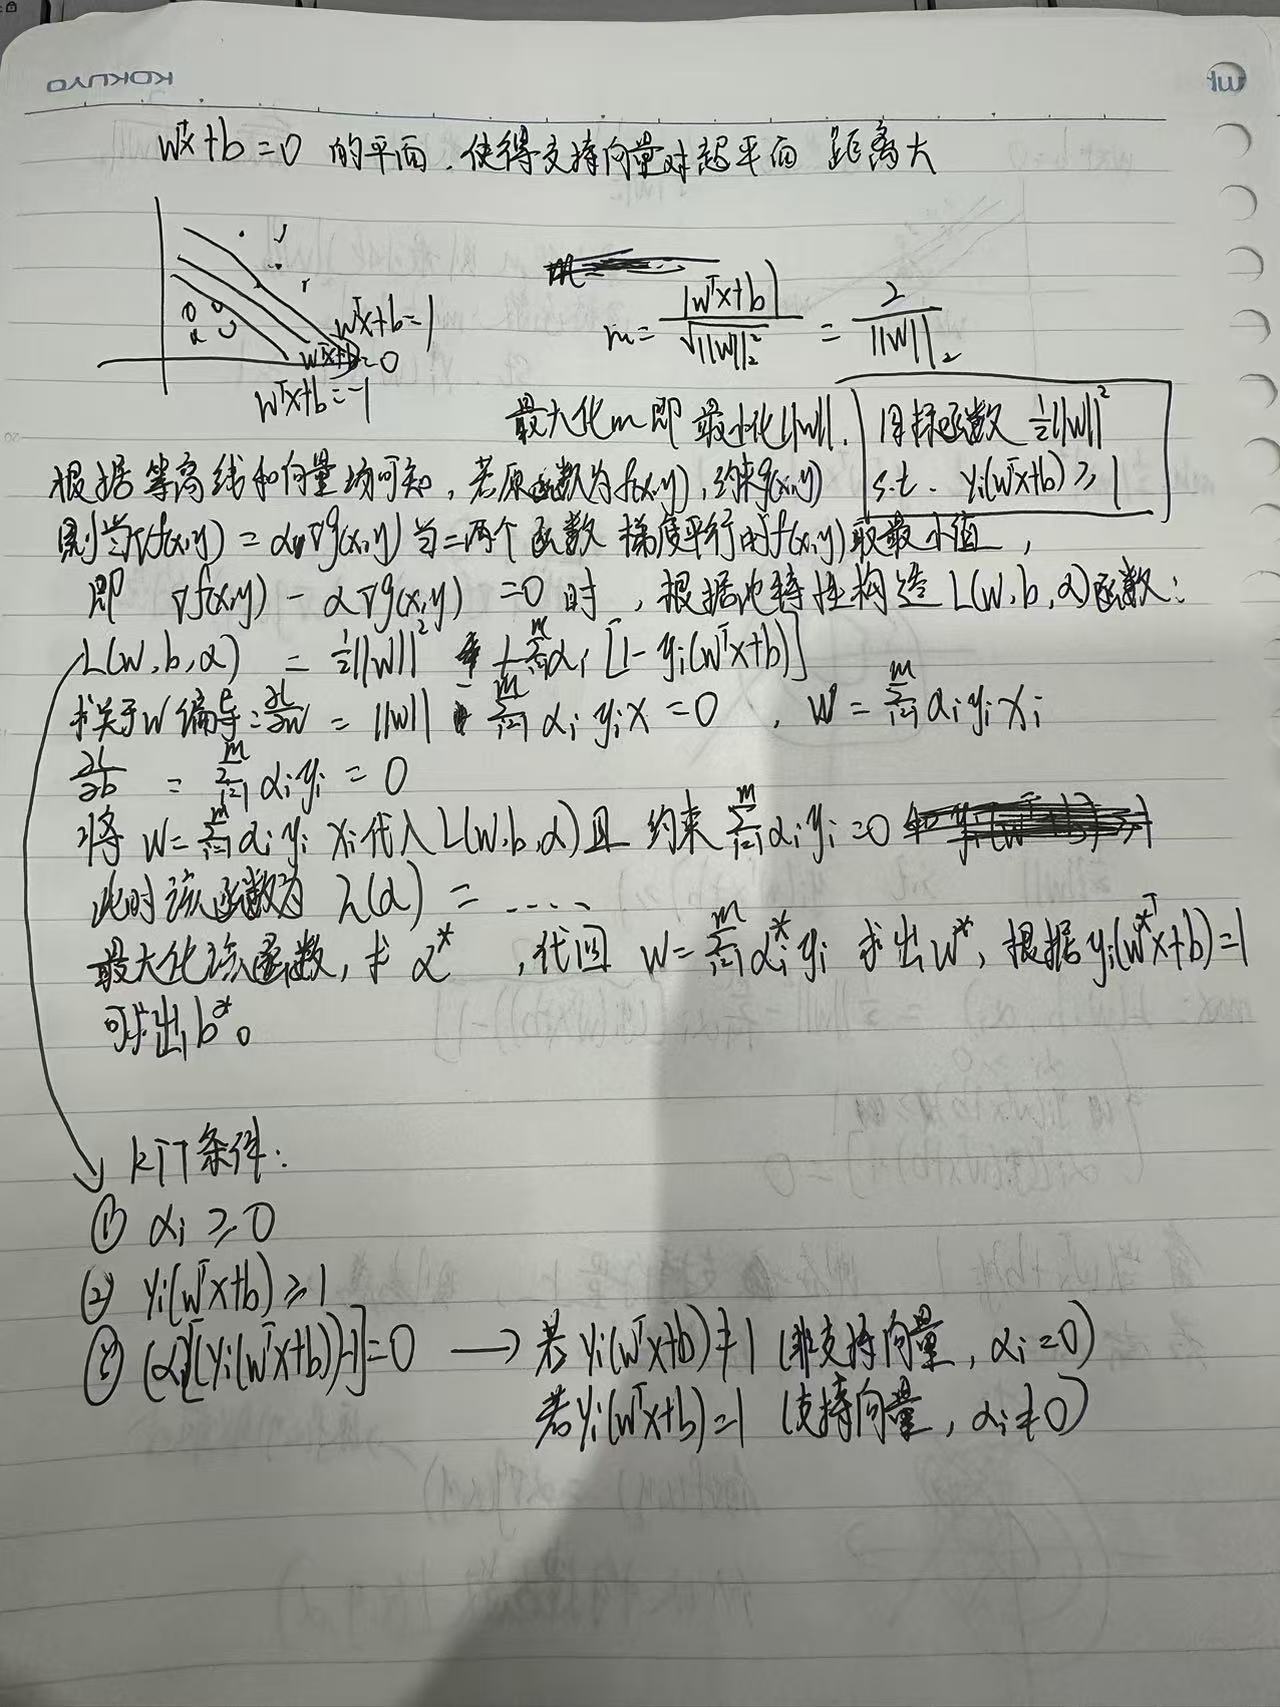 KOKUYO
wᵀx+b=0 的平面,使得支持向量对超平面 距离大
wᵀx+b=1
wᵀx+b=0
wᵀx+b=-1
m = |wᵀx+b| / √||w||₂² = 2 / ||w||₂
最大化m即最小化||w||.
目标函数 ½||w||²
s.t. yᵢ(wᵀx+b) ≥ 1
根据等高线和向量场可知,若原函数为f(x,y),约束g(x,y)
则当∇f(x,y) = α∇g(x,y) 当二两个函数梯度平行时f(x,y)取最小值,
即 ∇f(x,y) - α∇g(x,y) = 0 时,根据此特性构造L(w,b,α)函数:
L(w,b,α) = ½||w||² + Σᵢ₌₁ᵐ αᵢ [1 - yᵢ(wᵀx+b)]
求关于w偏导: ∂L/∂w = ||w|| - Σᵢ₌₁ᵐ αᵢ yᵢ x = 0 , w = Σᵢ₌₁ᵐ αᵢ yᵢ xᵢ
∂L/∂b = Σᵢ₌₁ᵐ αᵢ yᵢ = 0
将 w = Σᵢ₌₁ᵐ αᵢ yᵢ xᵢ 代入L(w,b,α)且 约束 Σᵢ₌₁ᵐ αᵢ yᵢ = 0
此时该函数为 L(α) = .....
最大化该函数,求 α* ,代回 w = Σᵢ₌₁ᵐ αᵢ* yᵢ 求出w*,根据yᵢ(w*ᵀx+b)=1
可求出b*。
KTT条件:
① αᵢ ≥ 0
② yᵢ(wᵀx+b) ≥ 1
③ (αᵢ[(yᵢ(wᵀx+b))-1]=0 → 若 yᵢ(wᵀx+b)≠1 (非支持向量, αᵢ=0)
若yᵢ(wᵀx+b)=1 (支持向量, αᵢ≠0)